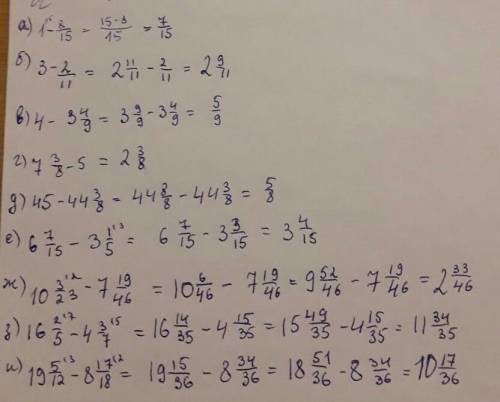 а) 1^15 - 8/15 = (15-8)/15 = 7/15
б) 3 - 2/11 = 2 11/11 - 2/11 = 2 9/11
в) 4 - 3 4/9 = 3 9/9 - 3 4/9 = 5/9
г) 7 3/8 - 5 = 2 3/8
д) 45 - 44 3/8 = 44 8/8 - 44 3/8 = 5/8
е) 6 7/15 - 3 1/5^3 = 6 7/15 - 3 3/15 = 3 4/15
ж) 10 3/23^2 - 7 19/46 = 10 6/46 - 7 19/46 = 9 52/46 - 7 19/46 = 2 33/46
з) 16 2/5^7 - 4 3/7^5 = 16 14/35 - 4 15/35 = 15 49/35 - 4 15/35 = 11 34/35
и) 19 5/12^3 - 8 17/18^2 = 19 15/36 - 8 34/36 = 18 51/36 - 8 34/36 = 10 17/36